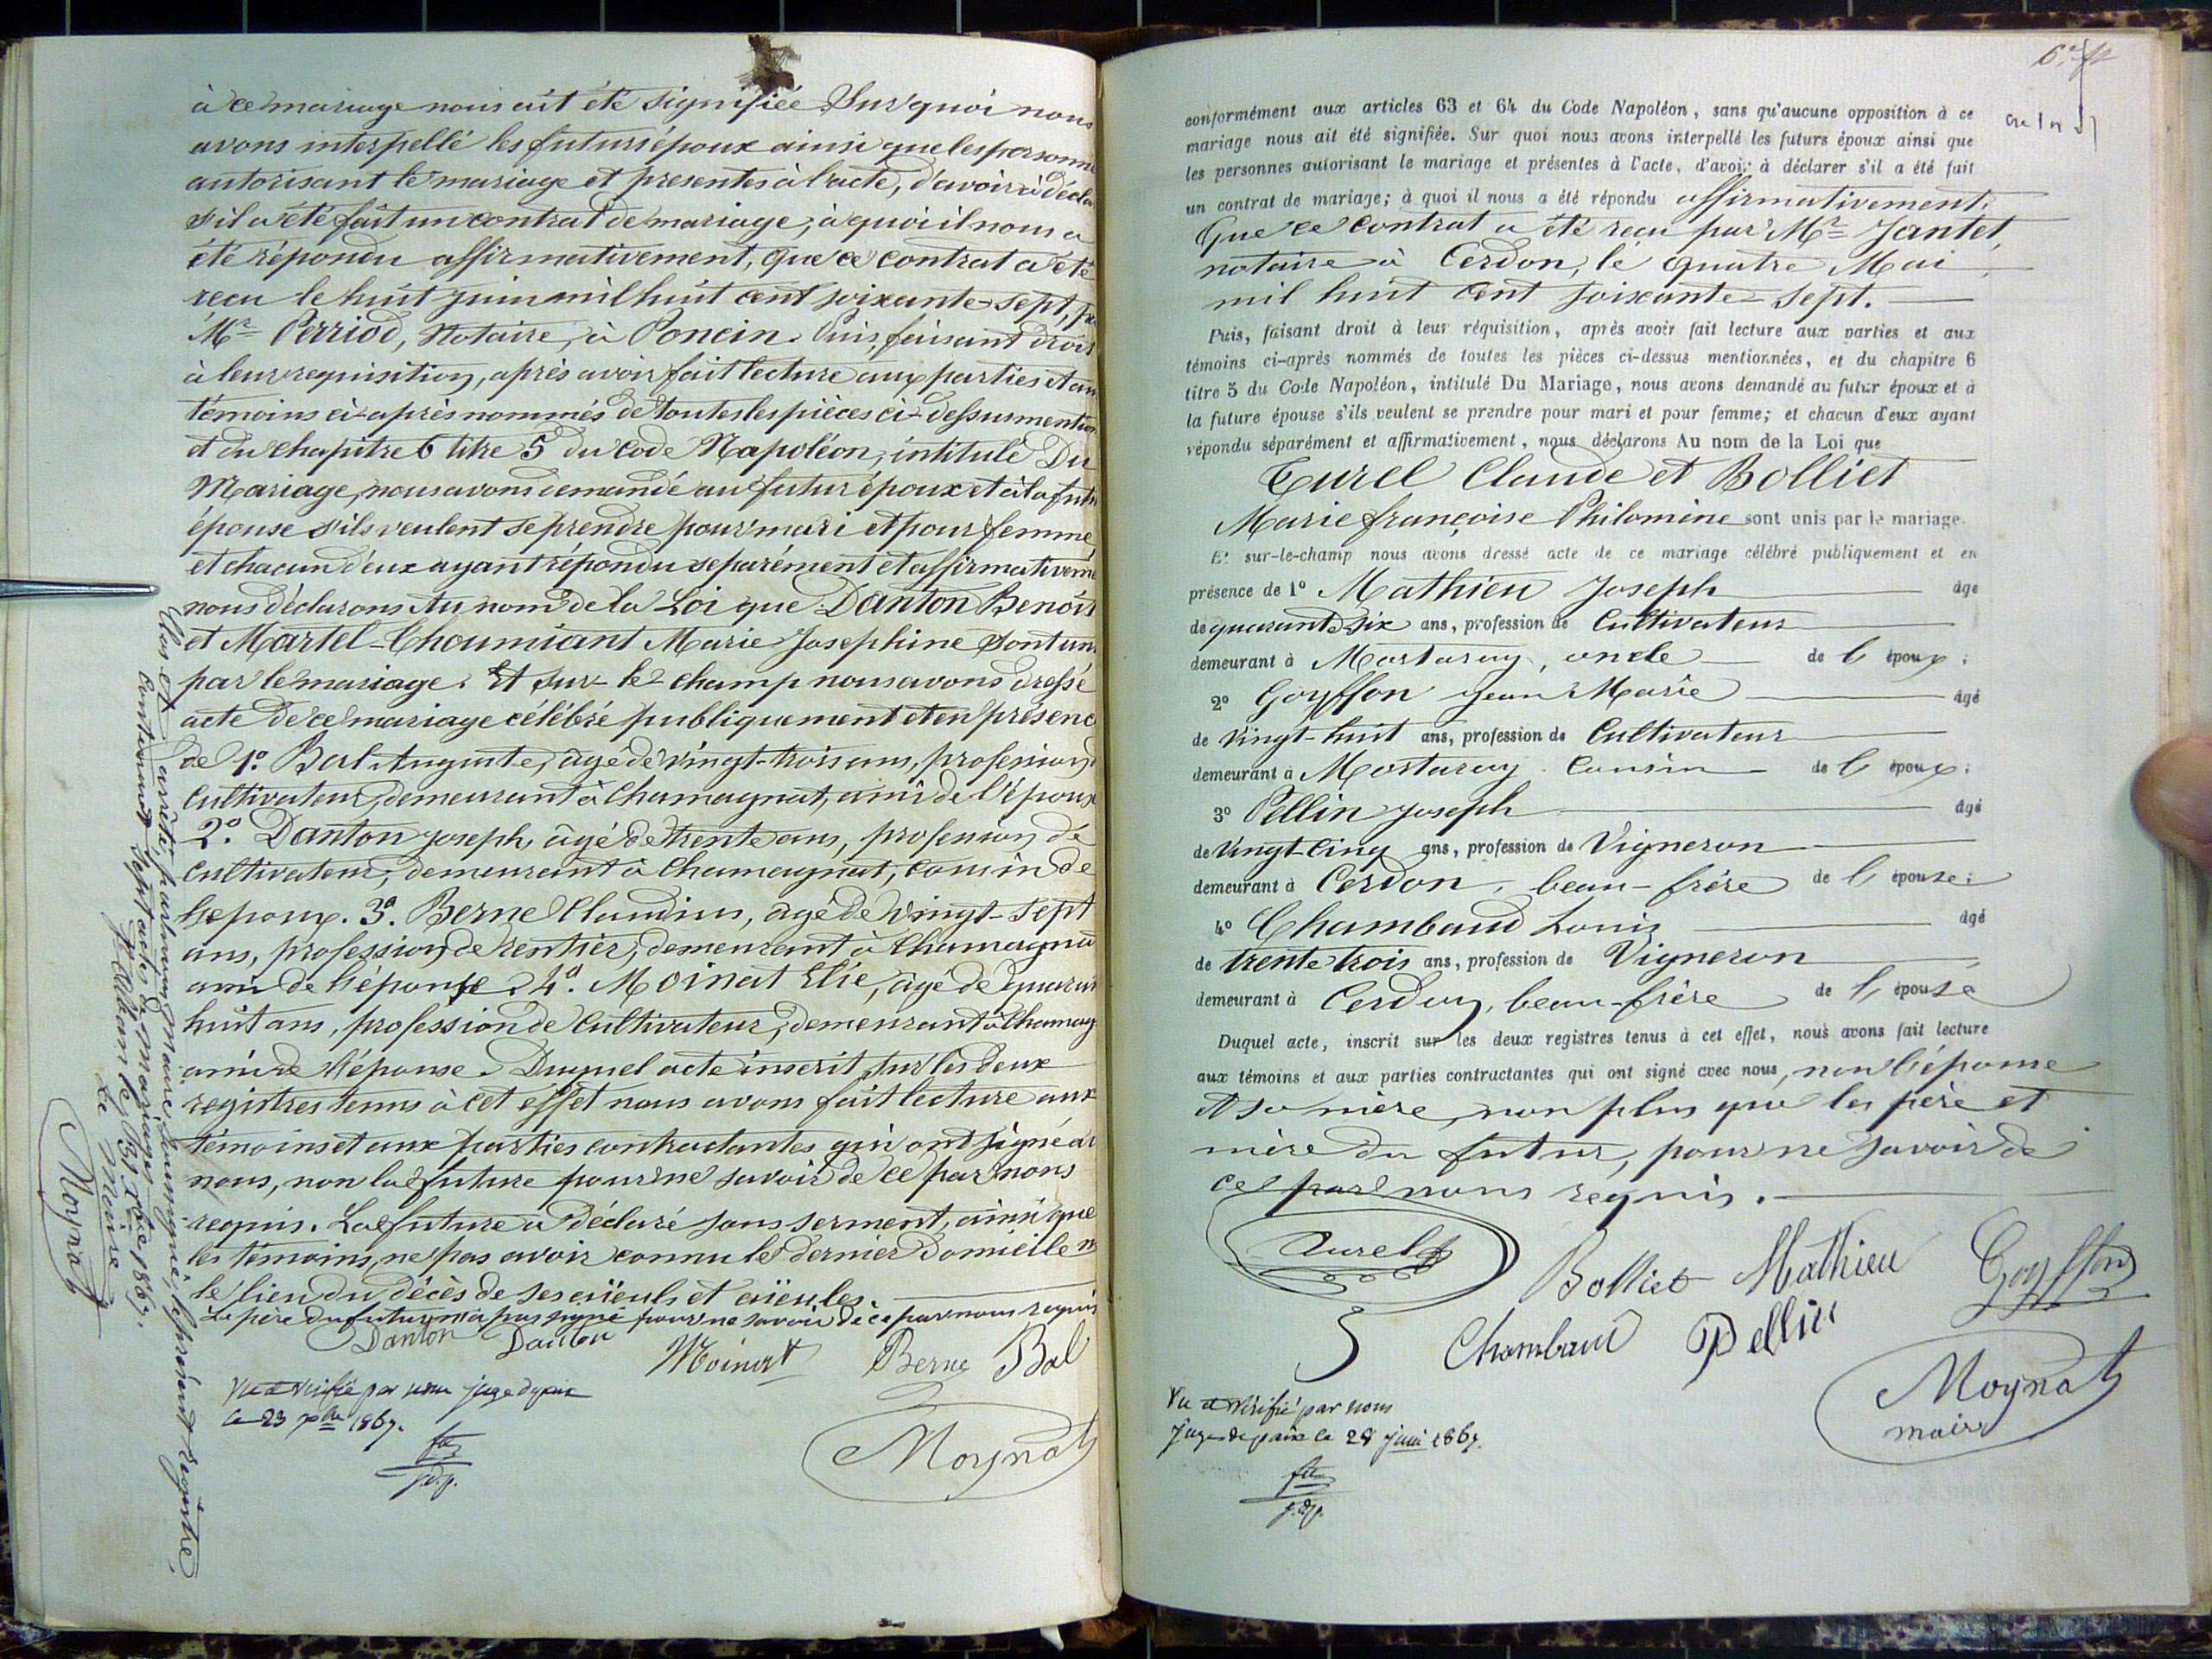 à ce mariage nous ait été signifiée. Sur quoi nous
avons interpellé les futurs époux ainsi que les personne
autorisant le mariage et presentes à l'acte, d'avoir à décla
s'il a été fait un contrat de mariage; à quoi il nous a
été répondu affirmativement, que ce contrat a été
recu le huit juin mil huit cent soixante-sept, pa
Mr Perriod, Notaire, à Poncin. Puis, faisant droit
à leur requisition, après avoir fait lecture aux parties et au
témoins ci-après nommés de toutes les pièces ci-dessus mention
et du chapitre 6 titre 5 du code Napoléon, intitulé Du
Mariage, nous avons demandé au futur époux et à la futu
épouse s'ils veulent se prendre pour mari et pour femme
et chacun d'eux ayant répondu separément et affirmativeme
nous déclarons Au nom de la Loi que Danton Benoit
et Martel-Choumiant Marie Josephine sont uni
par le mariage. Et sur-le-champ nous avons dressé
acte de ce mariage célébré publiquement et en présenc
de 1º. Bal Auguste, âgé de vingt-trois ans, profession d
Cultivateur, demeurant à Chamagnat, ami de l'époux
2º. Danton Joseph, âgé de trente ans, profession de
Cultivateur, demeurant à Chamagnat, cousin de
l'époux. 3º. Berne Claudius, âgé de vingt-sept
ans, profession de rentier, demeurant à Chamagna
ami de l'épouse. 4º. Moinat Elie, âgé de quaran
huit ans, profession de Cultivateur, demeurant à Chamag
ami de l'épouse. Duquel acte inscrit sur les deux
registres tenus à cet effet nous avons fait lecture aux
témoins et aux parties contractantes qui ont signé av
nous, non la future pour ne savoir de ce par nous
requis. La future a déclaré sous serment, ainsi que
les témoins, ne pas avoir connu le dernier domicile ni
le lieu du décès de ses aïeuls et aïeules.
Le père du futur n'a pas signé pour ne savoir de ce par nous requis
Danton Danton Moinat Berne Bal
Vu et vérifié par nous juge de paix
le 23 1867.
j.d.p.
Moynat
Clos et arrêté par nous maire soussigné, le présent registre,
Contenant sept actes de mariages
le 31 Xbre 1867.
Le Maire
Moynat
conformément aux articles 63 et 64 du Code Napoléon, sans qu'aucune opposition à ce
mariage nous ait été signifiée. Sur quoi nous avons interpellé les futurs époux ainsi que
les personnes autorisant le mariage et présentes à l'acte, d'avoir à déclarer s'il a été fait
un contrat de mariage; à quoi il nous a été répondu affirmativement.
Que ce contrat a été recu par Mr Jantet,
notaire à Cerdon, le quatre Mai
mil huit cent soixante-sept.
Puis, faisant droit à leur réquisition, après avoir fait lecture aux parties et aux
témoins ci-après nommés de toutes les pièces ci-dessus mentionnées, et du chapitre 6
titre 5 du Code Napoléon, intitulé Du Mariage, nous avons demandé au futur époux et à
la future épouse s'ils veulent se prendre pour mari et pour femme; et chacun d'eux ayant
répondu séparément et affirmativement, nous déclarons Au nom de la Loi que
Turel Claude et Bolliet
Marie françoise Philomine sont unis par le mariage.
Et sur-le-champ nous avons dressé acte de ce mariage célébré publiquement et en
présence de 1º Mathieu Joseph âgé
de quarante six ans, profession de Cultivateur
demeurant à Mortaray, oncle de l'époux;
2º Goyffon Jean Marie âgé
de vingt-huit ans, profession de Cultivateur
demeurant à Mortaray Cousin de l'époux;
3º Pellin Joseph âgé
de vingt-cinq ans, profession de Vigneron
demeurant à Cerdon, beau-frère de l'épouse;
4º Chambaud Louis âgé
de trente trois ans, profession de Vigneron
demeurant à Cerdon, beau-frère de l'épouse
Duquel acte, inscrit sur les deux registres tenus à cet effet, nous avons fait lecture
aux témoins et aux parties contractantes qui ont signé avec nous, non l'épouse
et sa mère, non plus que les père et
mère du futur, pour ne savoir de
ce par nous requis.
Turel Bolliet Mathieu Goyffon
Chambaud Pellin
Moynat
maire
Vu et vérifié par nous
Juge de paix le 28 juin 1867.
j.d.p.